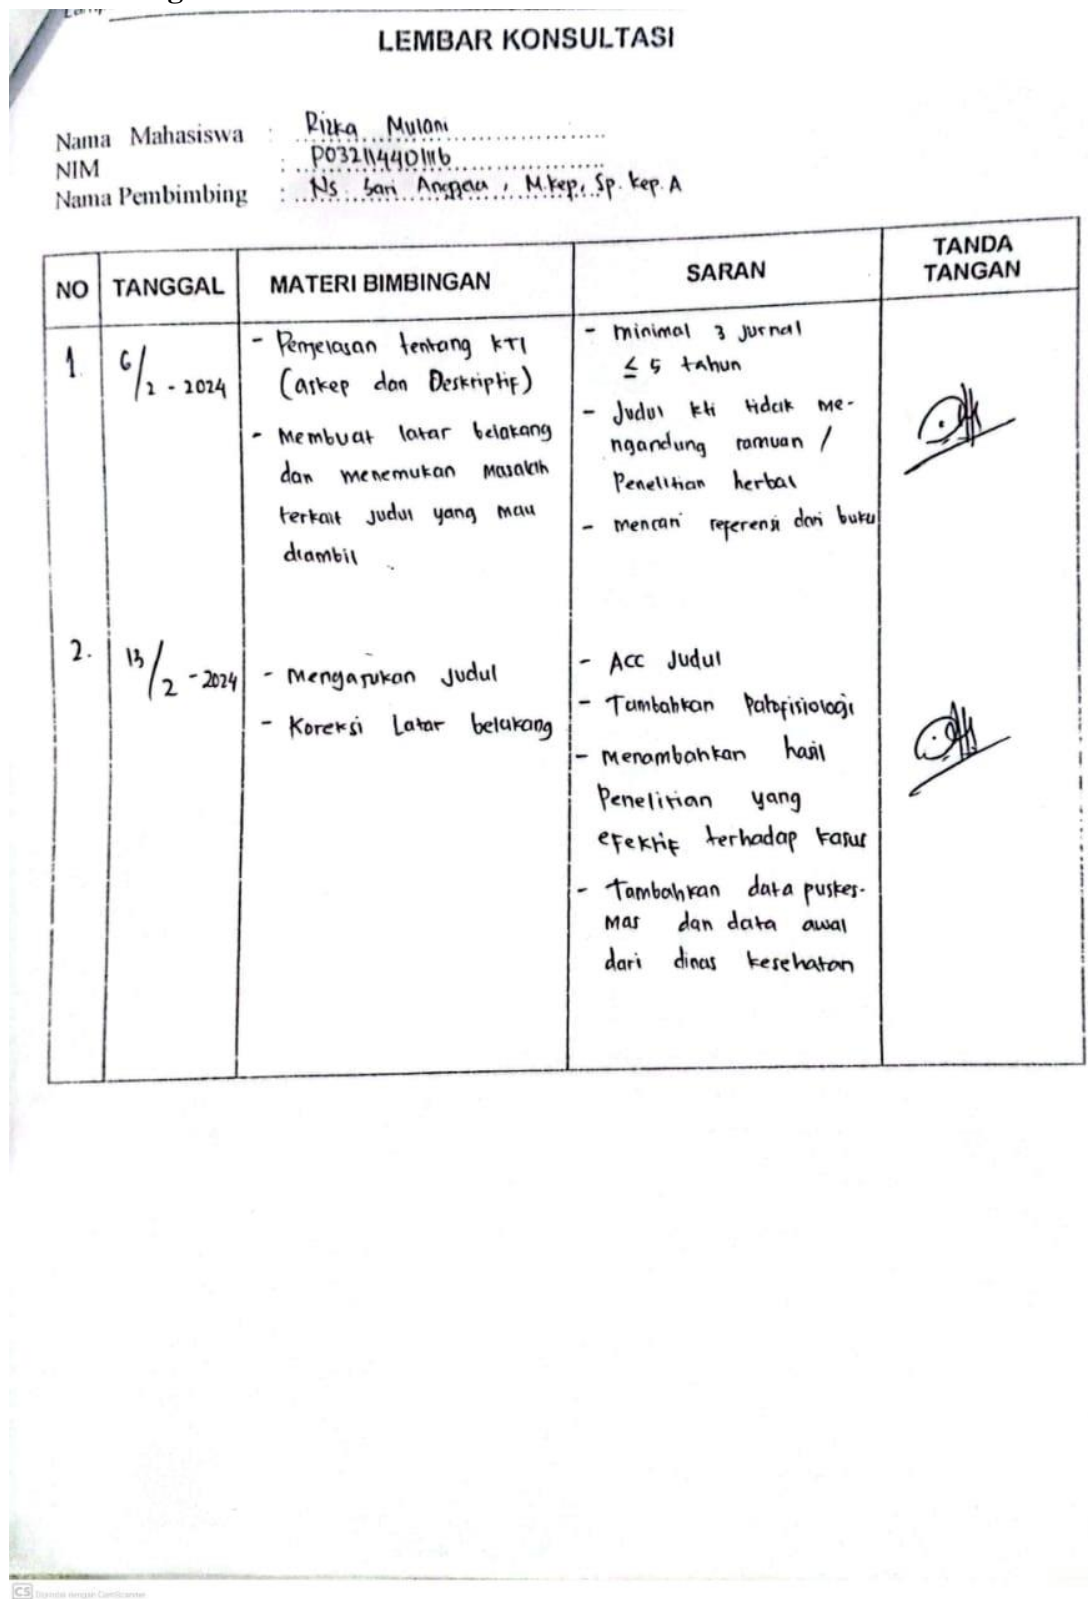 LEMBAR KONSULTASI
Nama Mahasiswa : Rizka Mulani
NIM : P032114401116
Nama Pembimbing : Ns. Sari Anggau, M.Kep, Sp. Kep. A
NO TANGGAL MATERI BIMBINGAN SARAN TANDA TANGAN
1. 6/2 - 2024
- Penjelasan tentang KTI
(askep dan Deskriptif)
- Membuat latar belakang
dan menemukan Masalah
terkait judul yang mau
diambil
- minimal 3 jurnal
≤ 5 tahun
- Judul kti tidak me-
ngandung ramuan /
Penelitian herbal
- mencari referensi dari buku
2. 13/2 - 2024
- Mengajukan Judul
- Koreksi Latar belakang
- Acc Judul
- Tambahkan Patofisiologi
- Menambahkan hasil
Penelitian yang
efektif terhadap kasus
- Tambahkan data puskes-
mas dan data awal
dari dinas kesehatan
CS Dipindai dengan CamScanner